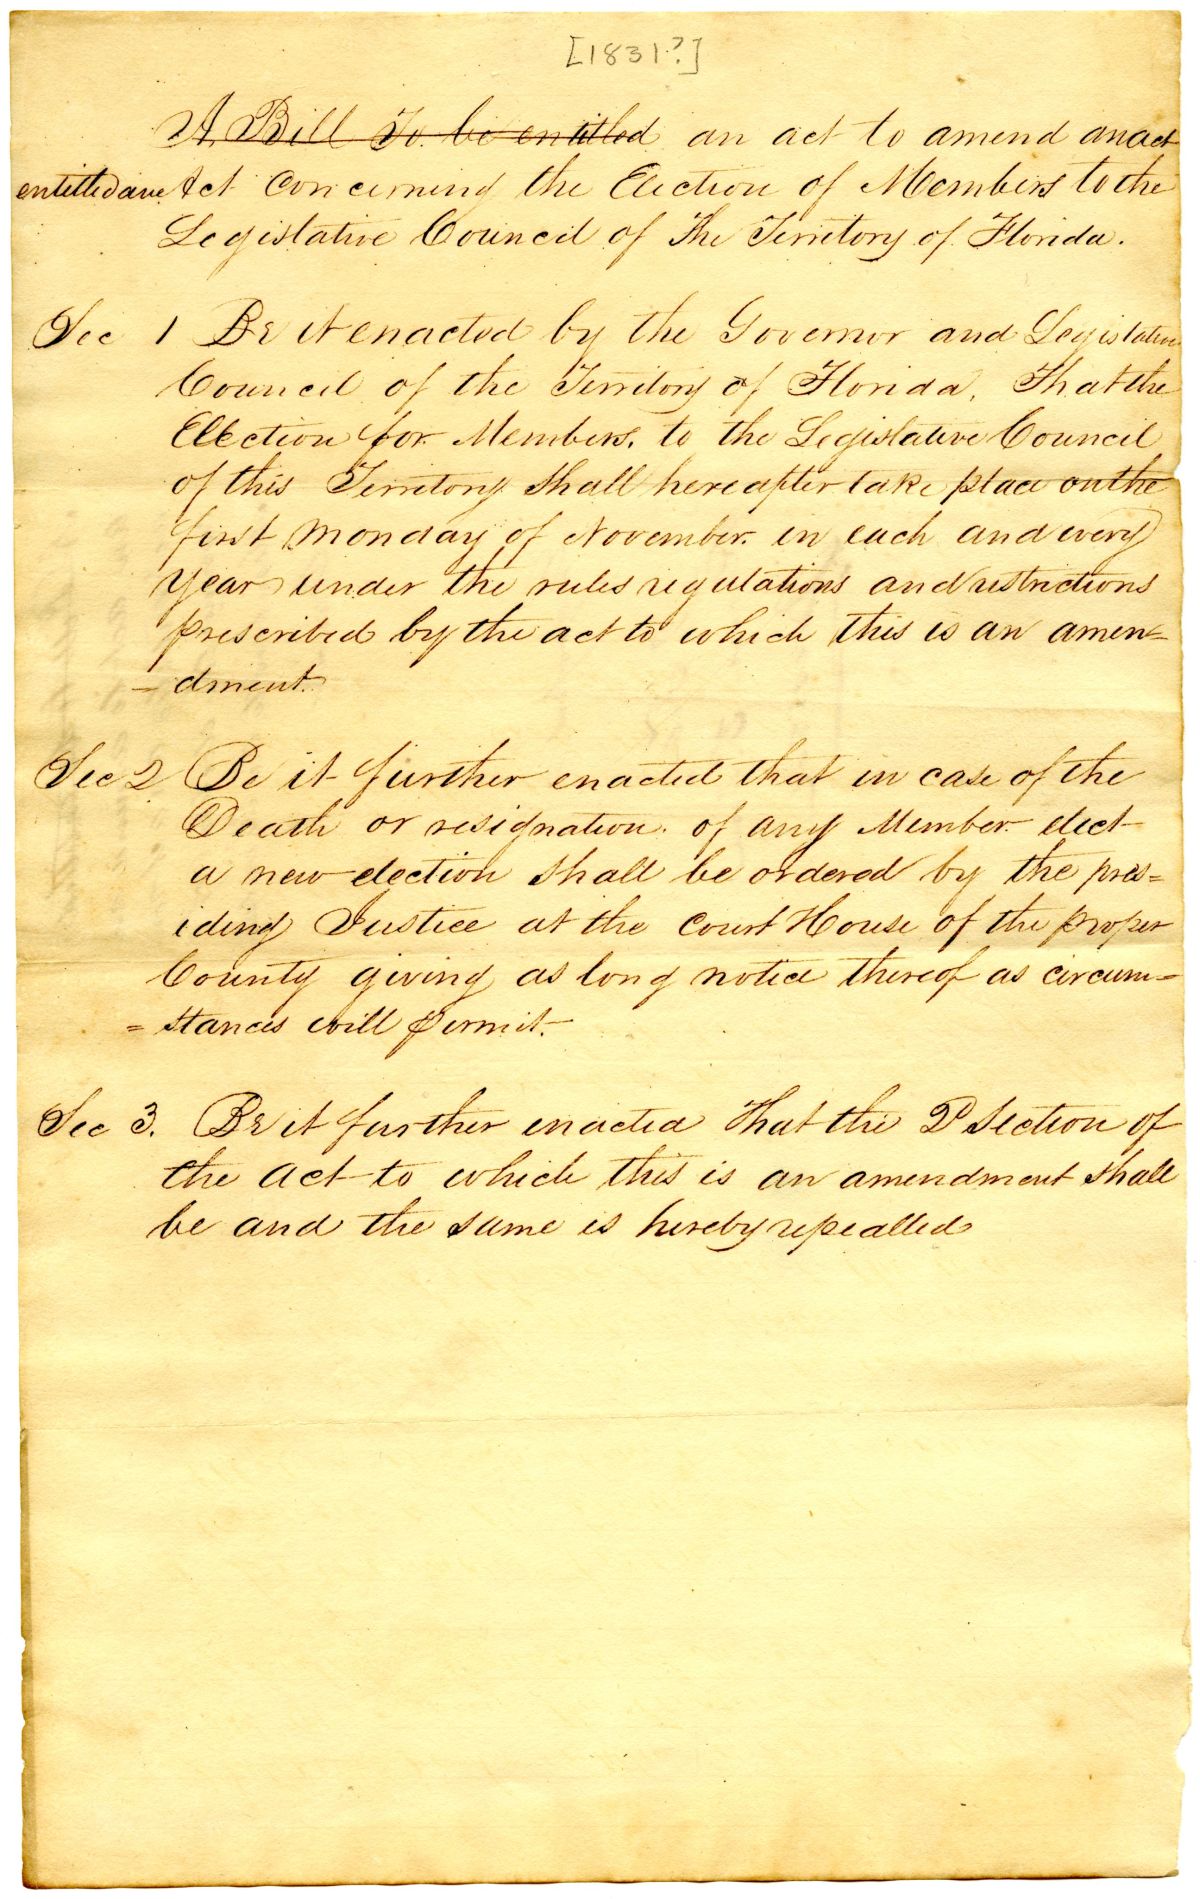 [1831?]
A Bill To be entitled an act to amend an act
entitled an Act Concerning the Election of Members to the
Legislative Council of the Territory of Florida.
Sec 1 Be it enacted by the Governor and Legislative
Council of the Territory of Florida, That the
Election for Members, to the Legislative Council
of this Territory shall hereafter take place on the
first Monday of November in each and every
Year under the rules regulations and restrictions
prescribed by the act to which this is an amen=
- dment.
Sec 2 Be it further enacted that in case of the
Death or resignation of any Member elect
a new election shall be ordered by the pres=
iding Justice at the Court House of the proper
County giving as long notice thereof as circum=
= stances will permit.
Sec 3. Be it further enacted That the 2d Section of
the act to which this is an amendment shall
be and the same is hereby repealled